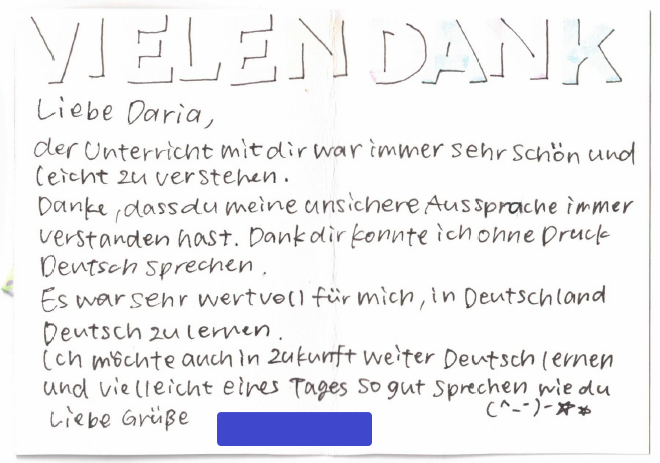 VIELEN DANK
Liebe Daria,
der Unterricht mit dir war immer sehr schön und
leicht zu verstehen.
Danke, dass du meine unsichere Aussprache immer
verstanden hast. Dank dir konnte ich ohne Druck
Deutsch sprechen.
Es war sehr wertvoll für mich, in Deutschland
Deutsch zu lernen.
Ich möchte auch in Zukunft weiter Deutsch lernen
und vielleicht eines Tages so gut sprechen wie du
(^_-)-☆★
Liebe Grüße